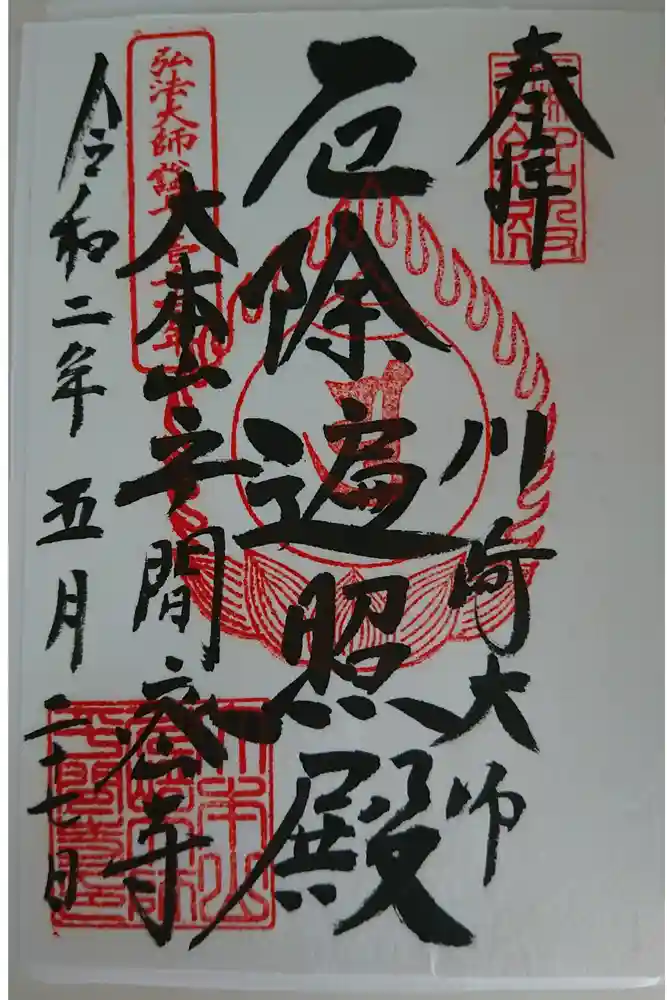 奉拝
川崎大師
厄除遍照殿
大本山平間寺
弘法大師
令和二年 五月二十七日